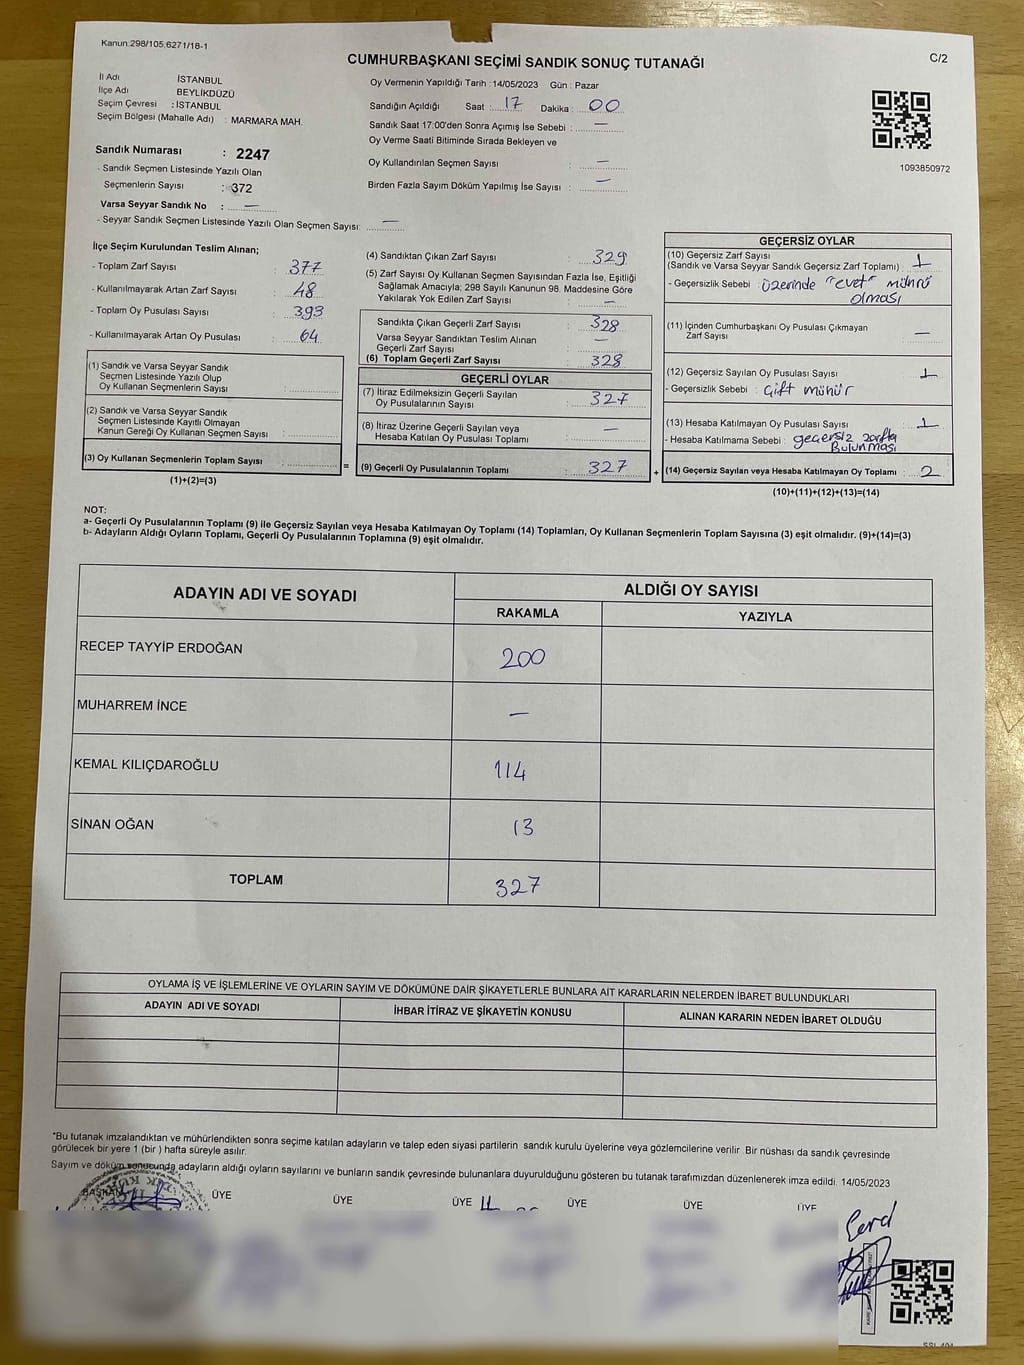 Kanun:298/105.6271/18-1
CUMHURBAŞKANI SEÇİMİ SANDIK SONUÇ TUTANAĞI
C/2
İl Adı İSTANBUL
İlçe Adı BEYLİKDÜZÜ
Seçim Çevresi : İSTANBUL
Seçim Bölgesi (Mahalle Adı) : MARMARA MAH.
Sandık Numarası : 2247
- Sandık Seçmen Listesinde Yazılı Olan
Seçmenlerin Sayısı : 372
Varsa Seyyar Sandık No : —
- Seyyar Sandık Seçmen Listesinde Yazılı Olan Seçmen Sayısı: —
Oy Vermenin Yapıldığı Tarih : 14/05/2023 Gün : Pazar
Sandığın Açıldığı Saat : 17 Dakika : 00
Sandık Saat 17:00'den Sonra Açımış İse Sebebi : —
Oy Verme Saati Bitiminde Sırada Bekleyen ve
Oy Kullandırılan Seçmen Sayısı : —
Birden Fazla Sayım Döküm Yapılmış İse Sayısı : —
1093850972
İlçe Seçim Kurulundan Teslim Alınan;
- Toplam Zarf Sayısı : 377
- Kullanılmayarak Artan Zarf Sayısı : 48
- Toplam Oy Pusulası Sayısı : 393
- Kullanılmayarak Artan Oy Pusulası : 64
(1) Sandık ve Varsa Seyyar Sandık
Seçmen Listesinde Yazılı Olup
Oy Kullanan Seçmenlerin Sayısı :
(2) Sandık ve Varsa Seyyar Sandık
Seçmen Listesinde Kayıtlı Olmayan
Kanun Gereği Oy Kullanan Seçmen Sayısı :
(3) Oy Kullanan Seçmenlerin Toplam Sayısı :
(1)+(2)=(3)
=
(4) Sandıktan Çıkan Zarf Sayısı : 329
(5) Zarf Sayısı Oy Kullanan Seçmen Sayısından Fazla İse, Eşitliği
Sağlamak Amacıyla; 298 Sayılı Kanunun 98. Maddesine Göre
Yakılarak Yok Edilen Zarf Sayısı : —
Sandıkta Çıkan Geçerli Zarf Sayısı : 328
Varsa Seyyar Sandıktan Teslim Alınan
Geçerli Zarf Sayısı : —
(6) Toplam Geçerli Zarf Sayısı : 328
GEÇERLİ OYLAR
(7) İtiraz Edilmeksizin Geçerli Sayılan
Oy Pusulalarının Sayısı : 327
(8) İtiraz Üzerine Geçerli Sayılan veya
Hesaba Katılan Oy Pusulası Toplamı : —
(9) Geçerli Oy Pusulalarının Toplamı : 327
+
GEÇERSİZ OYLAR
(10) Geçersiz Zarf Sayısı
(Sandık ve Varsa Seyyar Sandık Geçersiz Zarf Toplamı) : 1
- Geçersizlik Sebebi : üzerinde "evet" mührü
olması
(11) İçinden Cumhurbaşkanı Oy Pusulası Çıkmayan
Zarf Sayısı : —
(12) Geçersiz Sayılan Oy Pusulası Sayısı : 1
- Geçersizlik Sebebi : Çift mühür
(13) Hesaba Katılmayan Oy Pusulası Sayısı : 1
- Hesaba Katılmama Sebebi : geçersiz zarfta
Bulunması
(14) Geçersiz Sayılan veya Hesaba Katılmayan Oy Toplamı : 2
(10)+(11)+(12)+(13)=(14)
NOT:
a- Geçerli Oy Pusulalarının Toplamı (9) ile Geçersiz Sayılan veya Hesaba Katılmayan Oy Toplamı (14) Toplamları, Oy Kullanan Seçmenlerin Toplam Sayısına (3) eşit olmalıdır. (9)+(14)=(3)
b- Adayların Aldığı Oyların Toplamı, Geçerli Oy Pusulalarının Toplamına (9) eşit olmalıdır.
ADAYIN ADI VE SOYADI
ALDIĞI OY SAYISI
RAKAMLA YAZIYLA
RECEP TAYYİP ERDOĞAN 200
MUHARREM İNCE —
KEMAL KILIÇDAROĞLU 114
SİNAN OĞAN 13
TOPLAM 327
OYLAMA İŞ VE İŞLEMLERİNE VE OYLARIN SAYIM VE DÖKÜMÜNE DAİR ŞİKAYETLERLE BUNLARA AİT KARARLARIN NELERDEN İBARET BULUNDUKLARI
ADAYIN ADI VE SOYADI İHBAR İTİRAZ VE ŞİKAYETİN KONUSU ALINAN KARARIN NEDEN İBARET OLDUĞU
*Bu tutanak imzalandıktan ve mühürlendikten sonra seçime katılan adayların ve talep eden siyasi partilerin sandık kurulu üyelerine veya gözlemcilerine verilir. Bir nüshası da sandık çevresinde
görülecek bir yere 1 (bir ) hafta süreyle asılır.
Sayım ve döküm sonucunda adayların aldığı oyların sayılarını ve bunların sandık çevresinde bulunanlara duyurulduğunu gösteren bu tutanak tarafımızdan düzenlenerek imza edildi. 14/05/2023
BAŞKAN ÜYE ÜYE ÜYE ÜYE ÜYE ÜYE